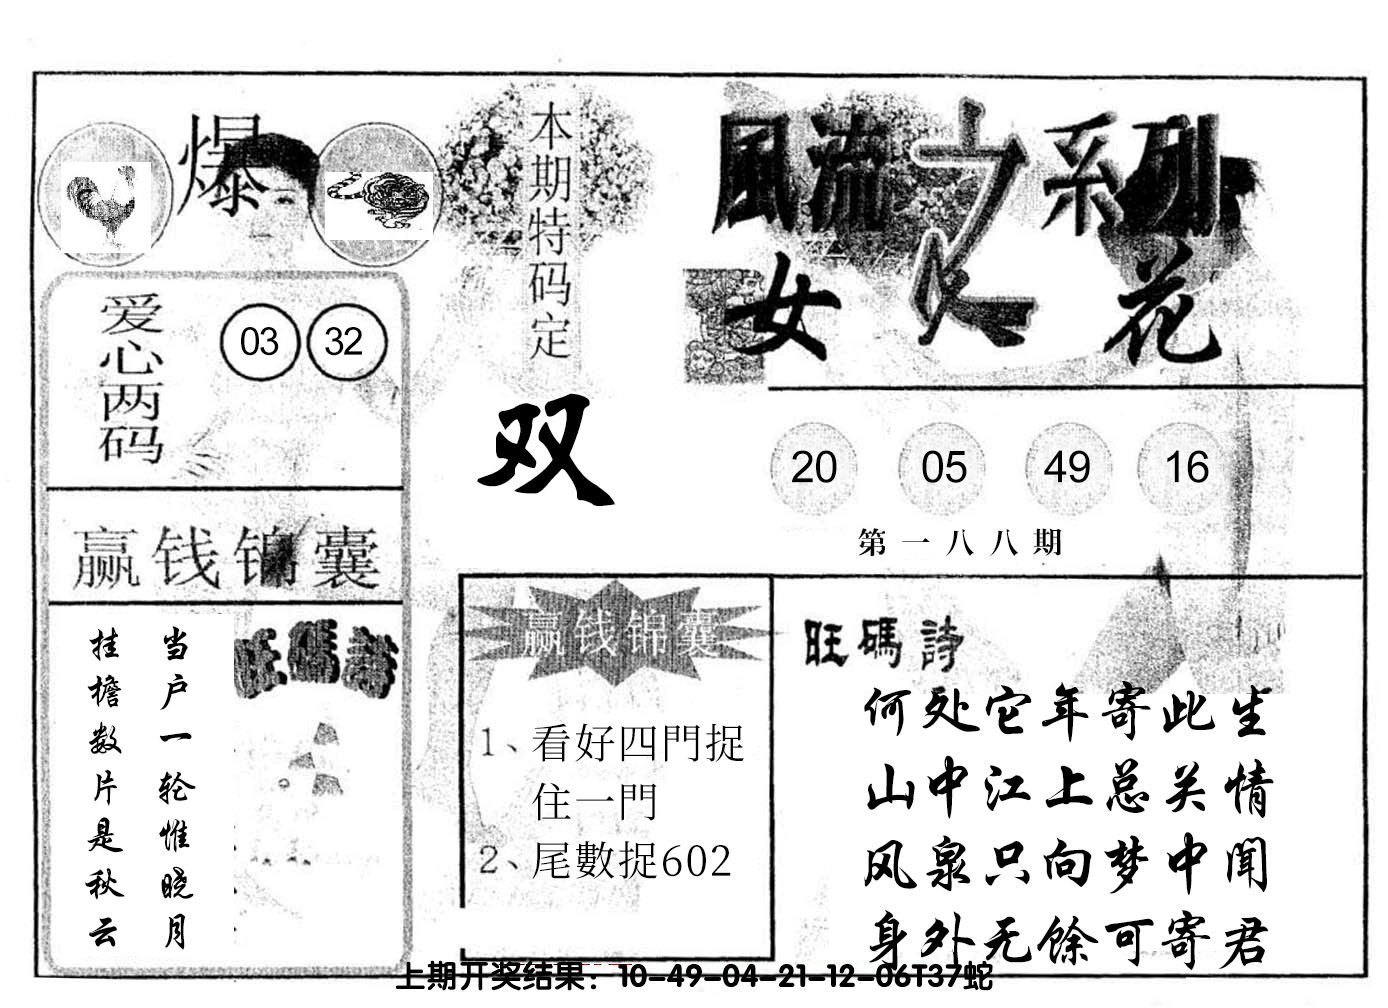 爆
本期特码定
双
風流之系列
女人花
爱心两码
03 32
20 05 49 16
第一八八期
赢钱锦囊
当户一轮惟晓月
挂檐数片是秋云
旺碼詩
赢钱锦囊
1、看好四門捉
住一門
2、尾數捉602
旺碼詩
何处它年寄此生
山中江上总关情
风泉只向梦中闻
身外无馀可寄君
上期开奖结果：10-49-04-21-12-06T37蛇